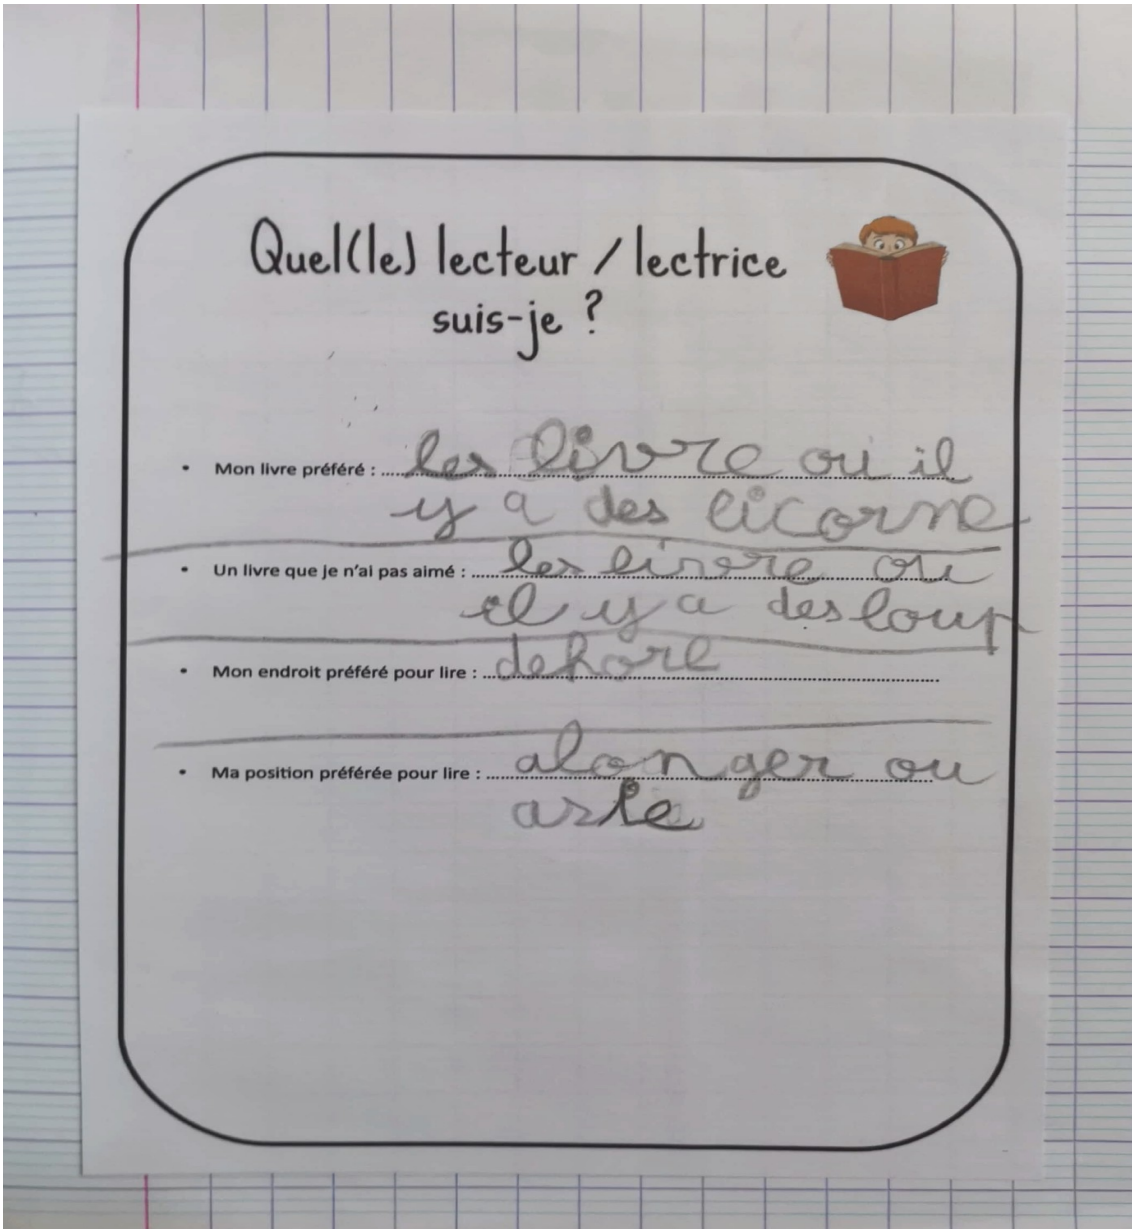 Quel(le) lecteur / lectrice
suis-je ?
• Mon livre préféré : les livre ou il
y a des licorne
• Un livre que je n'ai pas aimé : les livre ou
il y a des loup
• Mon endroit préféré pour lire : dehore
• Ma position préférée pour lire : alonger ou